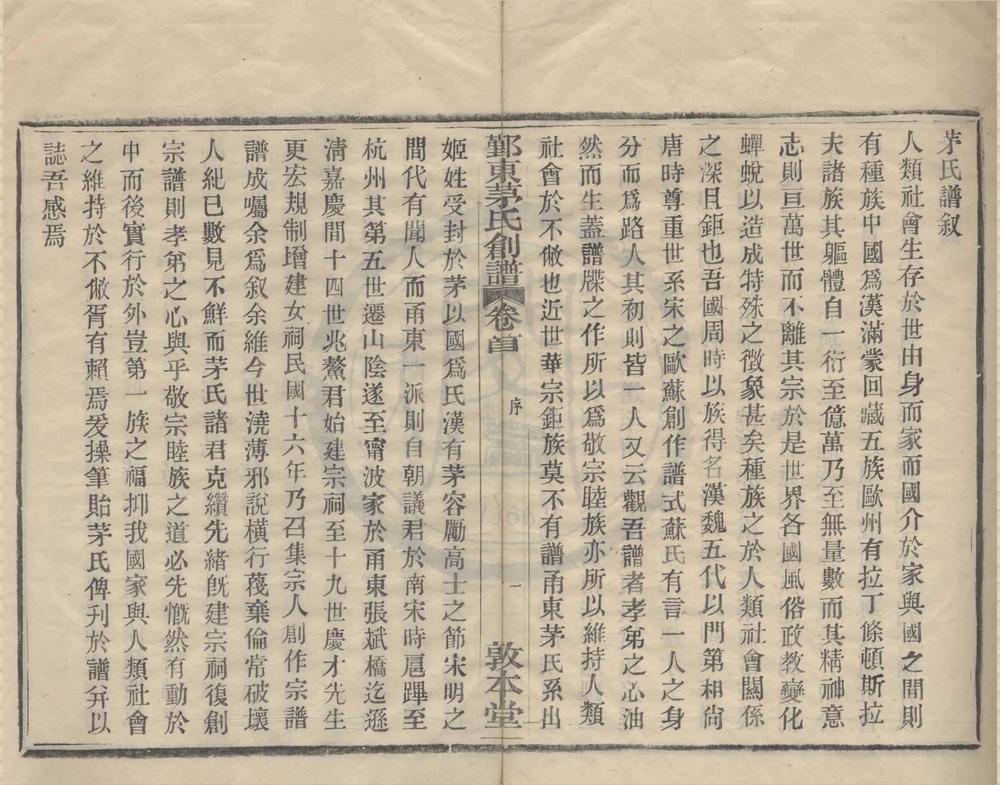 茅氏譜叙
人類社會生存於世由身而家而國介於家與國之間則
有種族中國爲漢滿蒙回藏五族歐州有拉丁條頓斯拉
夫諸族其軀體自一衍至億萬乃至無量數而其精神意
志則亘萬世而不離其宗於是世界各國風俗政教變化
蟬蛻以造成特殊之徵象甚矣種族之於人類社會關係
之深且鉅也吾國周時以族得名漢魏五代以門第相尙
唐時尊重世系宋之歐蘇創作譜式蘇氏有言一人之身
分而爲路人其初則皆一人又云觀吾譜者孝弟之心油
然而生蓋譜牒之作所以爲敬宗睦族亦所以維持人類
社會於不敝也近世華宗鉅族莫不有譜甬東茅氏系出
鄞東茅氏創譜 卷首 序 一 敦本堂
姬姓受封於茅以國爲氏漢有茅容勵高士之節宋明之
間代有聞人而甬東一派則自朝議君於南宋時扈蹕至
杭州其第五世遷山陰遂至甯波家於甬東張斌橋迄遜
淸嘉慶間十四世兆鰲君始建宗祠至十九世慶才先生
更宏規制增建女祠民國十六年乃召集宗人創作宗譜
譜成囑余爲叙余維今世澆薄邪說橫行蔑棄倫常破壞
人紀已數見不鮮而茅氏諸君克纘先緒旣建宗祠復創
宗譜則孝弟之心與乎敬宗睦族之道必先慨然有動於
中而後實行於外豈第一族之福抑我國家與人類社會
之維持於不敝胥有賴焉爰操筆貽茅氏俾刋於譜弁以
誌吾感焉